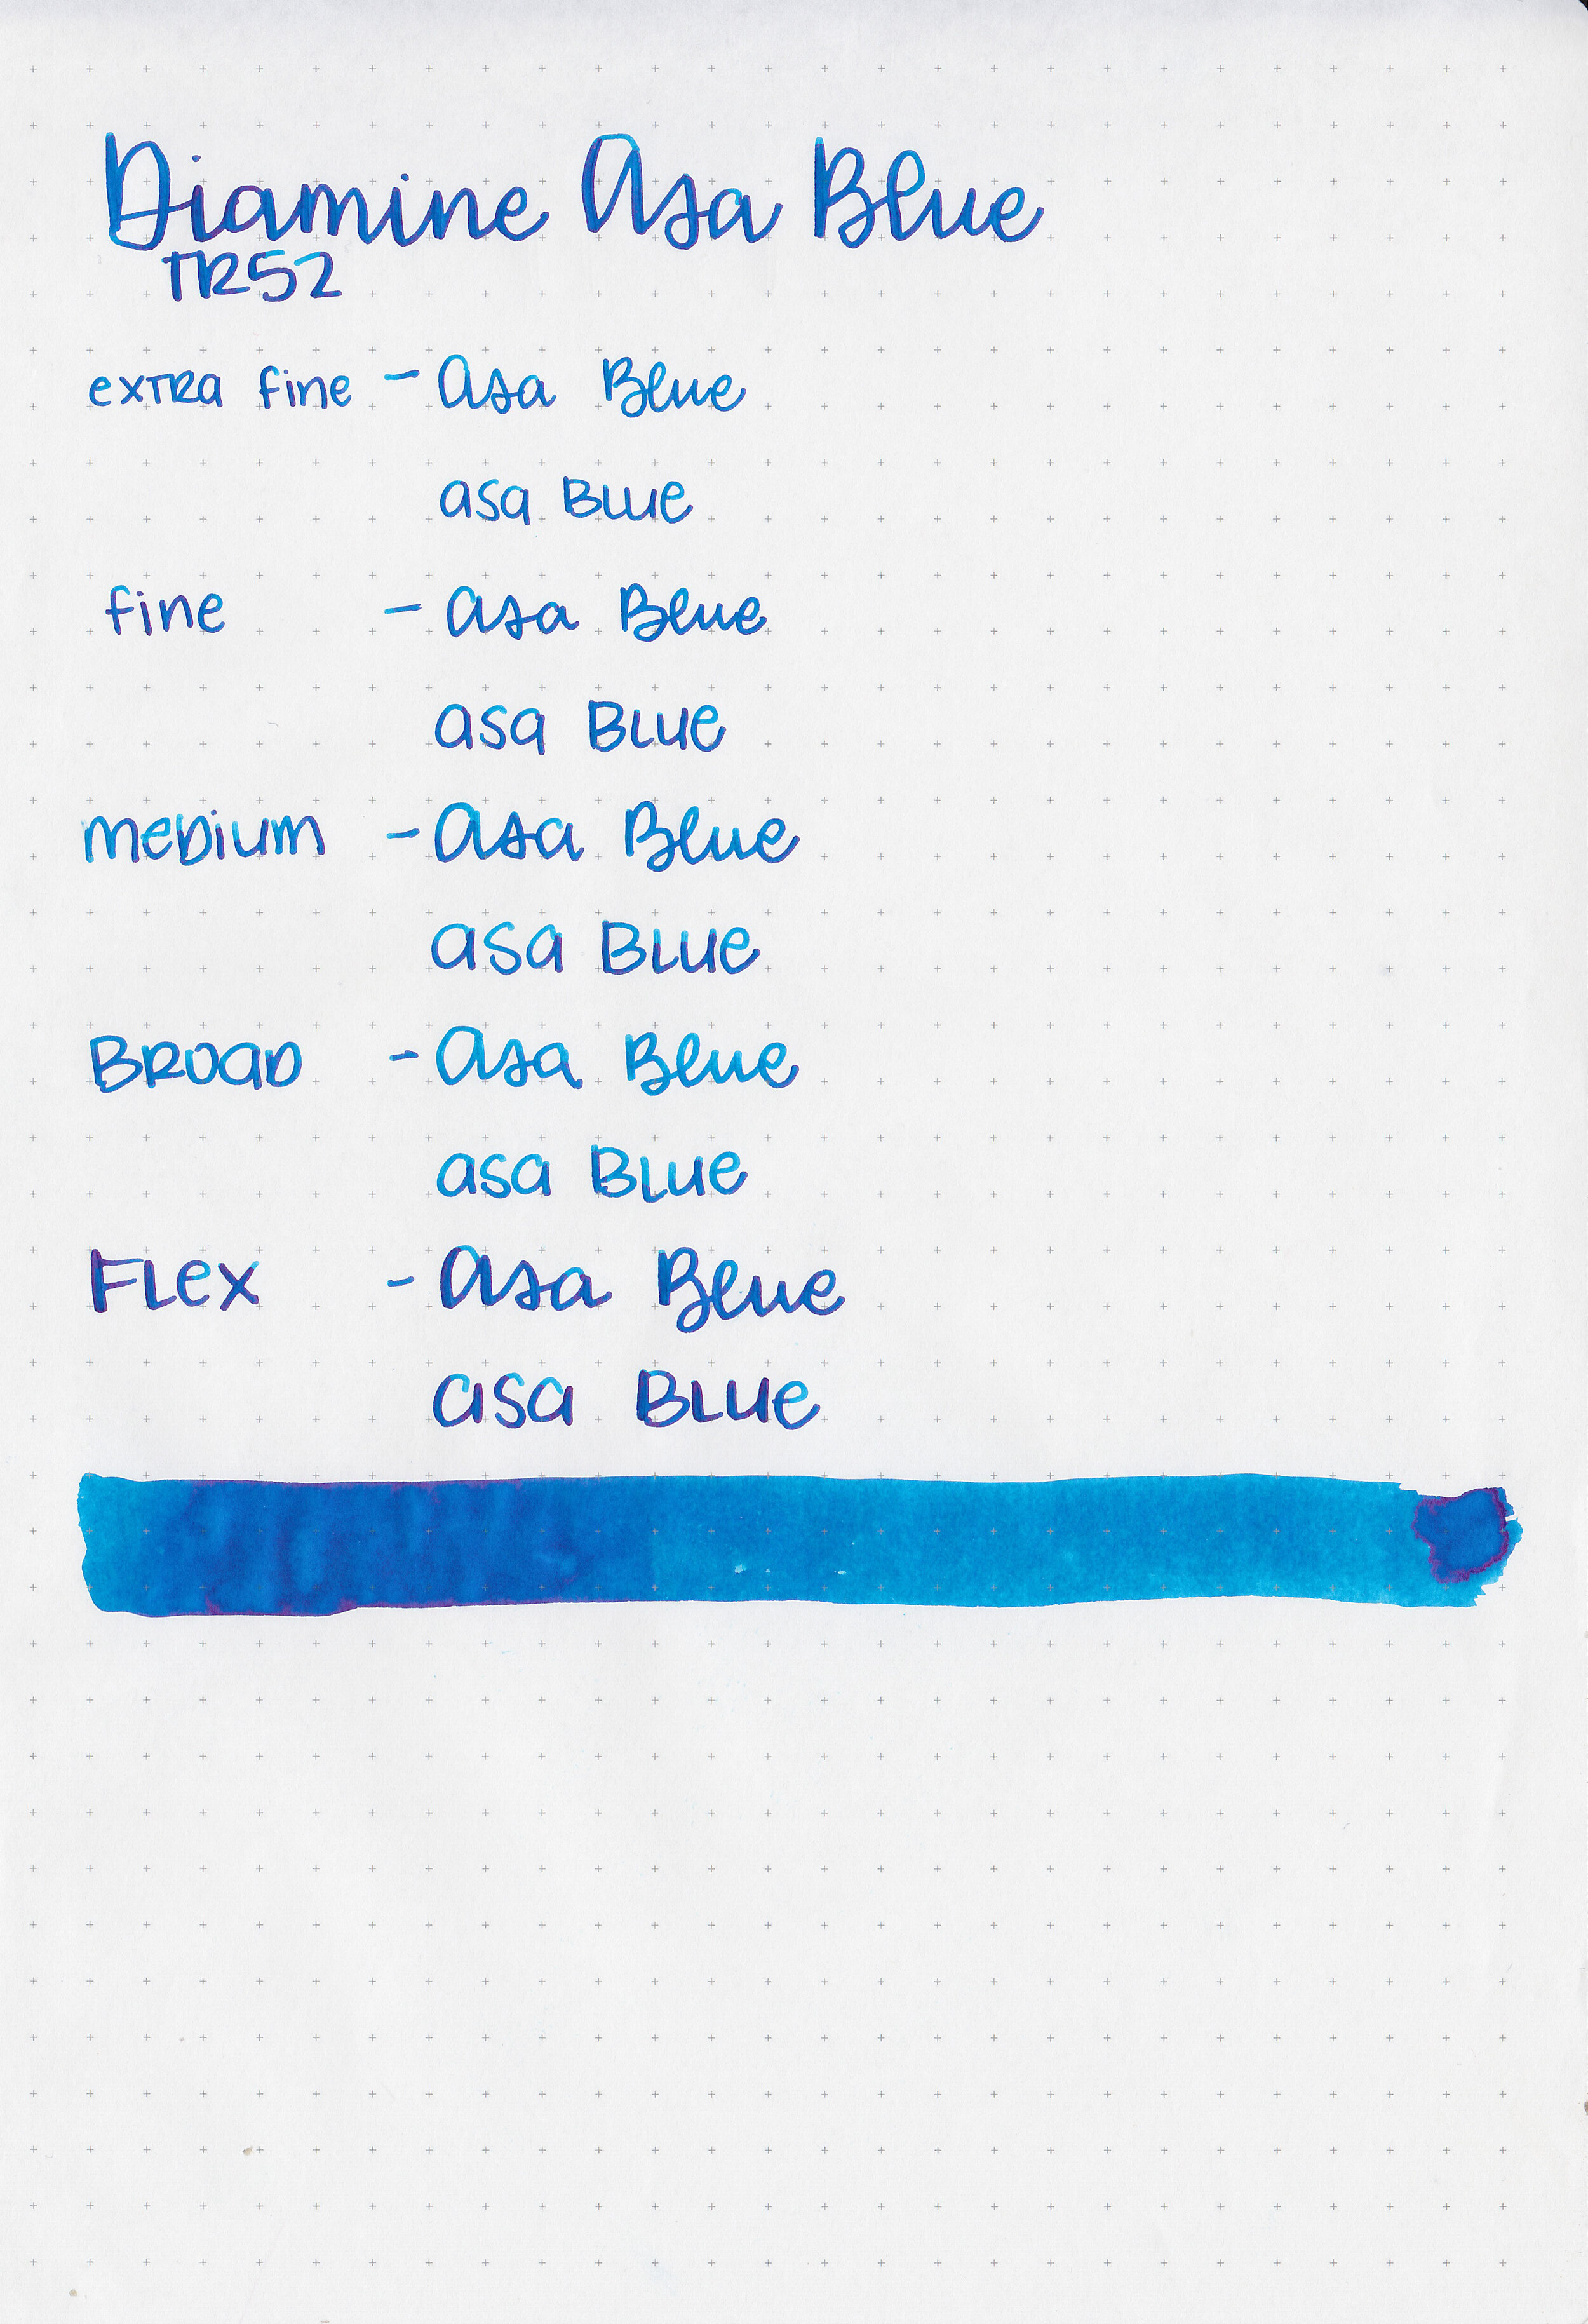 Diamine Asa Blue
TR52
extra fine - Asa Blue
asa Blue
fine - Asa Blue
asa Blue
medium - Asa Blue
asa Blue
Broad - Asa Blue
asa Blue
Flex - Asa Blue
asa Blue